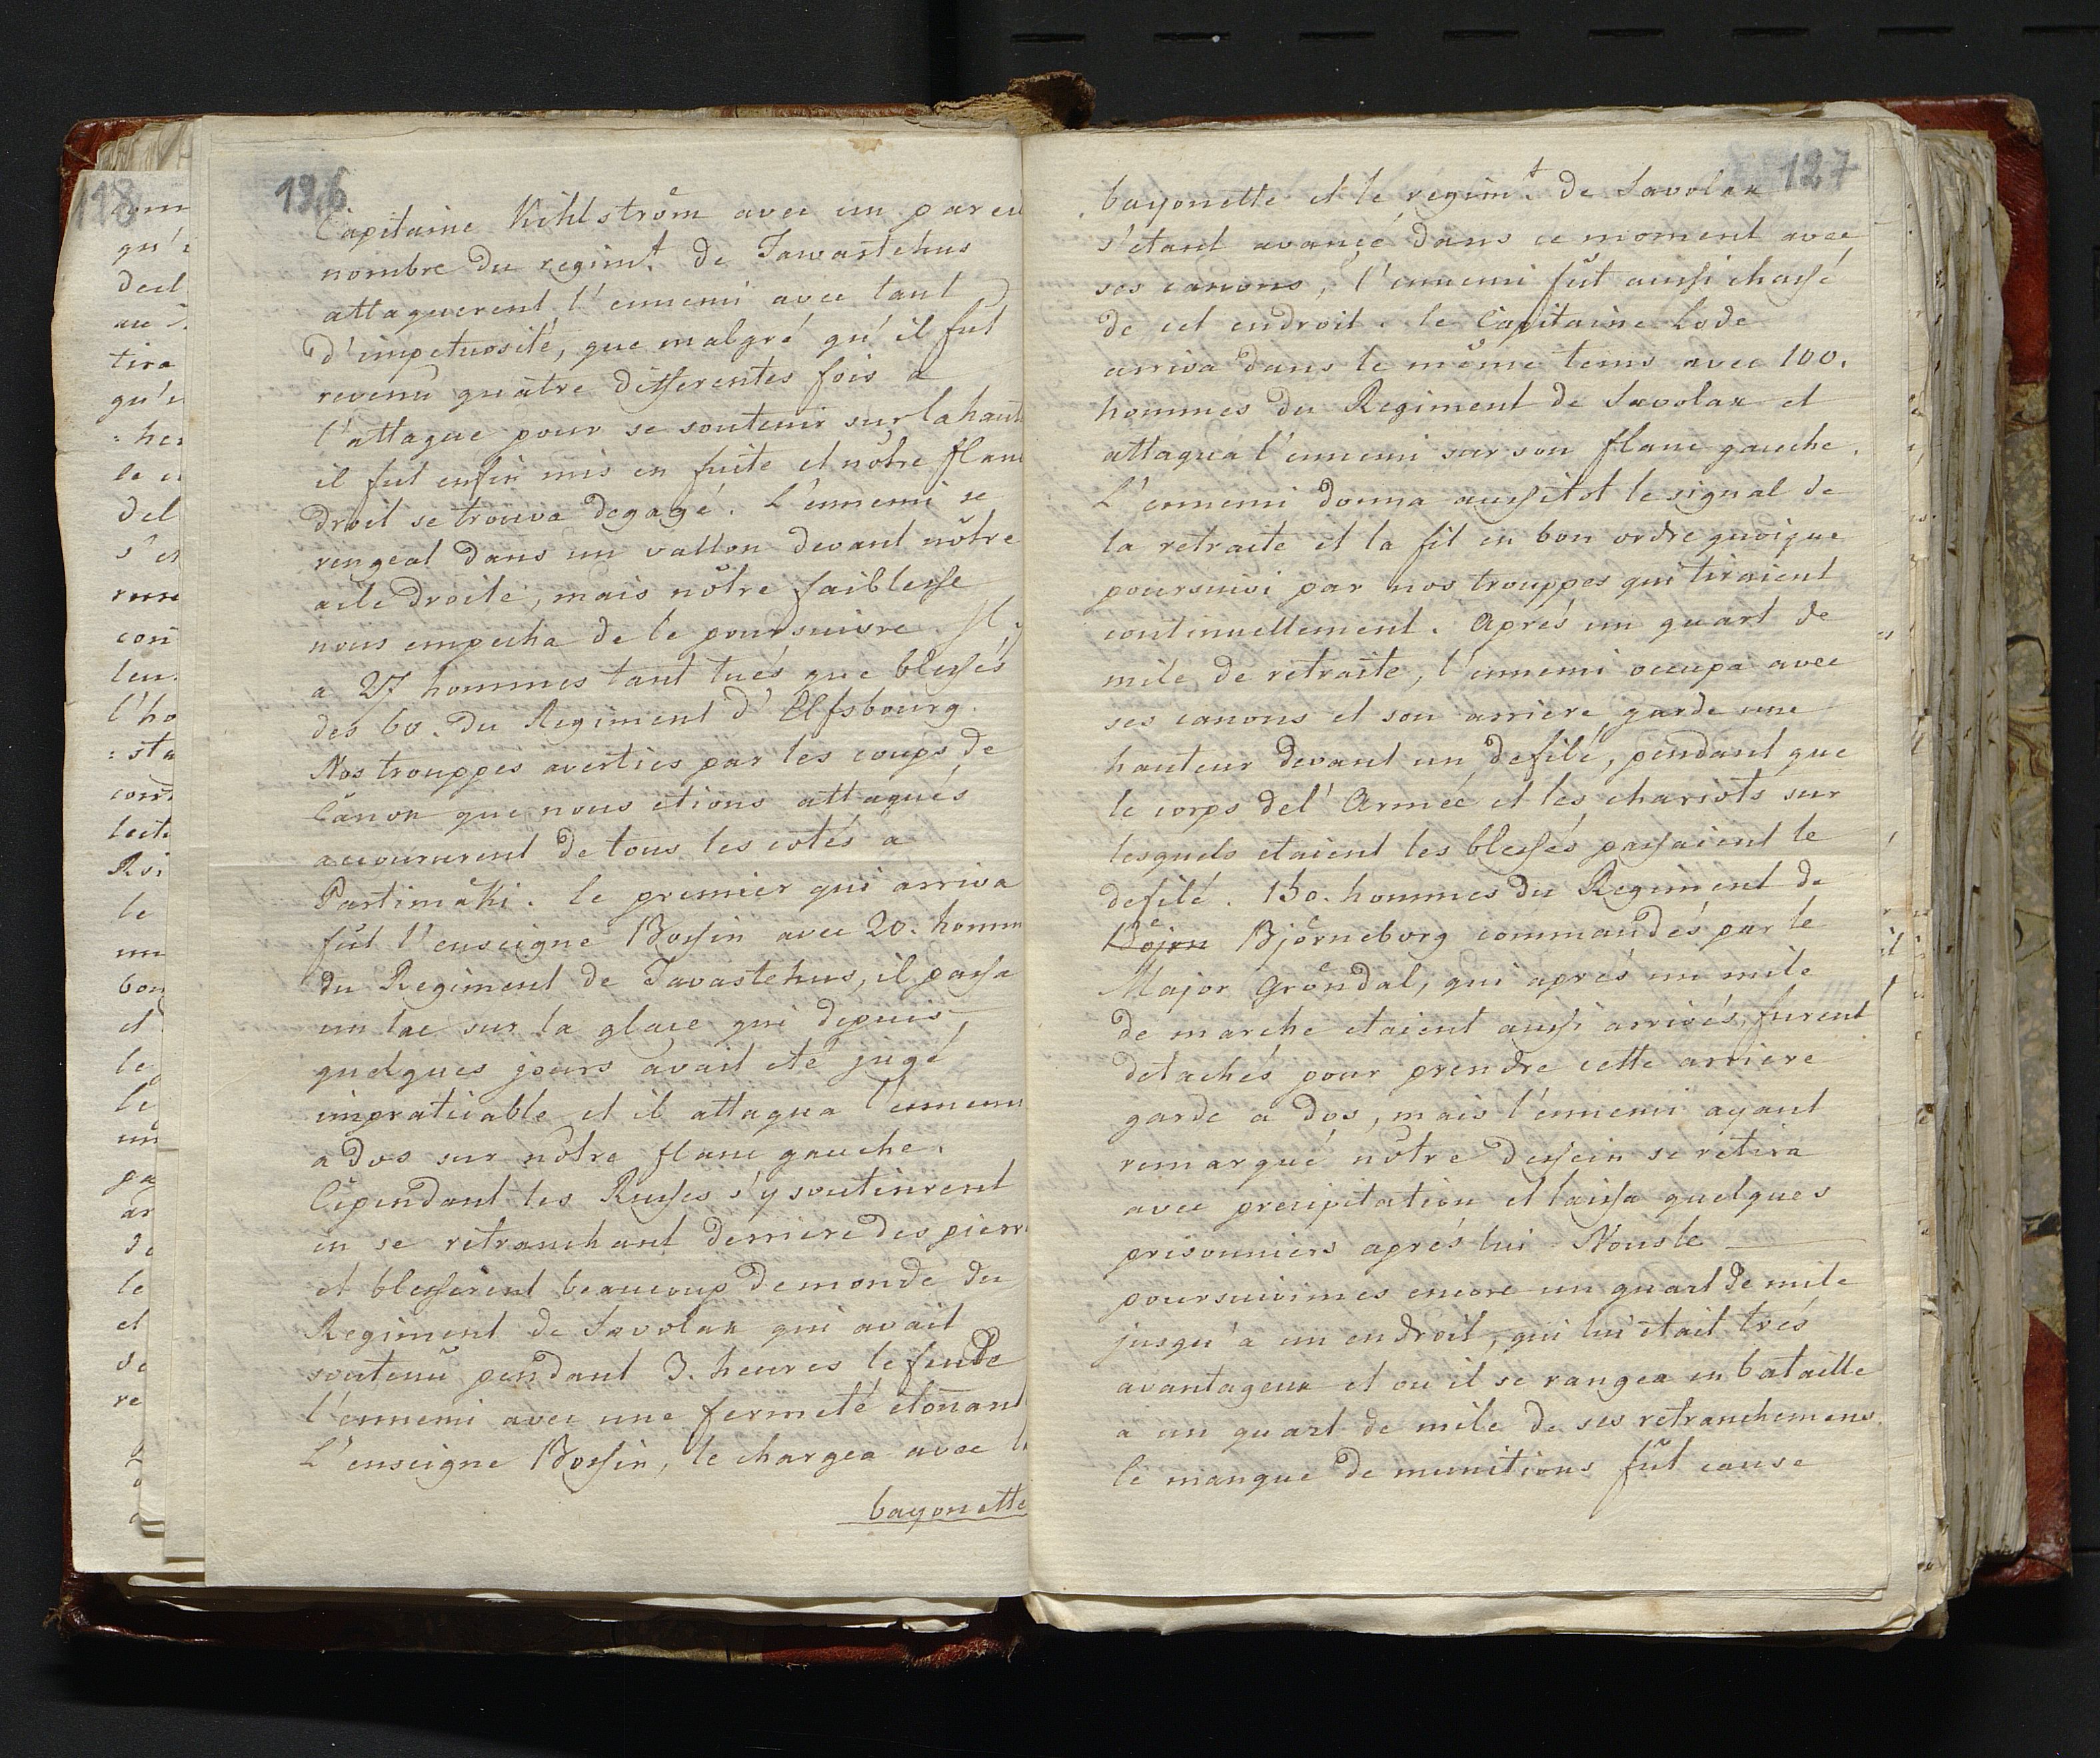 118
om
qu'
del
au
tira
qu'
: he
le
del
s'et
con
leu
l'ho
: sta
com
Roi
le
un
bon
et
le
le
un
pa
ar
de
le
et
de
re
126
Capitaine Kihlström avec un pareil
nombre du regimt. de Tawastehus
attaquerent l'ennemi avec tant
d'impetuosité, que malgré qu'il fut
revenu quatre differentes fois a
l'attaque pour se soutenir sur la haut
il fut enfin mis en fuite et nôtre flanc
droit se trouva degagé. L'ennemi se
rengeat dans un vallon devant nôtre
aile droite, mais nôtre faiblesse
nous empecha de le poursuivre. Il y
a 27 hommes tant tués que blessés
des 60. du Regiment d'Elfsbourg.
Nos trouppes averties par les coups de
Canon que nous etions attaqués
accoururent de tous les cotés a
Partimäki. le premier qui arriva
fut l'enseigne Bossin avec 20. homm
du Regiment de Tavastehus, il passa
un lac sur la glace qui depuis
quelques jours avait eté jugé
impraticable et il attaqua l'ennemi
a dos sur nôtre flanc gauche.
Cependant les Russes s'y soutinrent
en se retranchant derriere des pierr
et blesserent beaucoup de monde du
Regiment de Savolax qui avait
soutenu pendant 3. heures le feu de
l'ennemi avec une fermeté etonant
L'enseigne Bossin, le chargea avec l
bayonette
127
bayonette et le regimt. de Savolax
s'etant avancé dans ce moment avec
ses canons, l'ennemi fût aussi chassé
de cet endroit. le Capitaine Lode
arriva dans le même tems avec 100.
hommes du Regiment de Savolax et
attaqua l'ennemi sur son flanc gauche.
L'ennemi donna aussitot le signal de
la retraite et la fit en bon ordre quoique
poursuivi par nos trouppes qui tiraient
continuellement. Aprés un quart de
mile de retraite, l'ennemi occupa avec
ses canons et son arriere garde une
hauteur devant un defilé, pendant que
le corps del'Armée et les chariots sur
lesquels etaient les blessés passaient le
defilé. 150. hommes du Regiment de
Bojrn Björneborg commandés par le
Major Gröndal, qui aprés un mile
de marche etaient aussi arrivés, furent
detachés pour prendre cette arriere
garde a dos, mais l'ennemi ayant
remarqué nôtre dessein se retira
avec precipitation et laissa quelques
prisonniers aprés lui - Nous le
poursuivimes encore un quart de mile
jusqu'à un endroit, qui lui etait trés
avantageux et ou il se rangea en bataille
a un quart de mile de ses retranchemens.
le manque de munitions fût cause